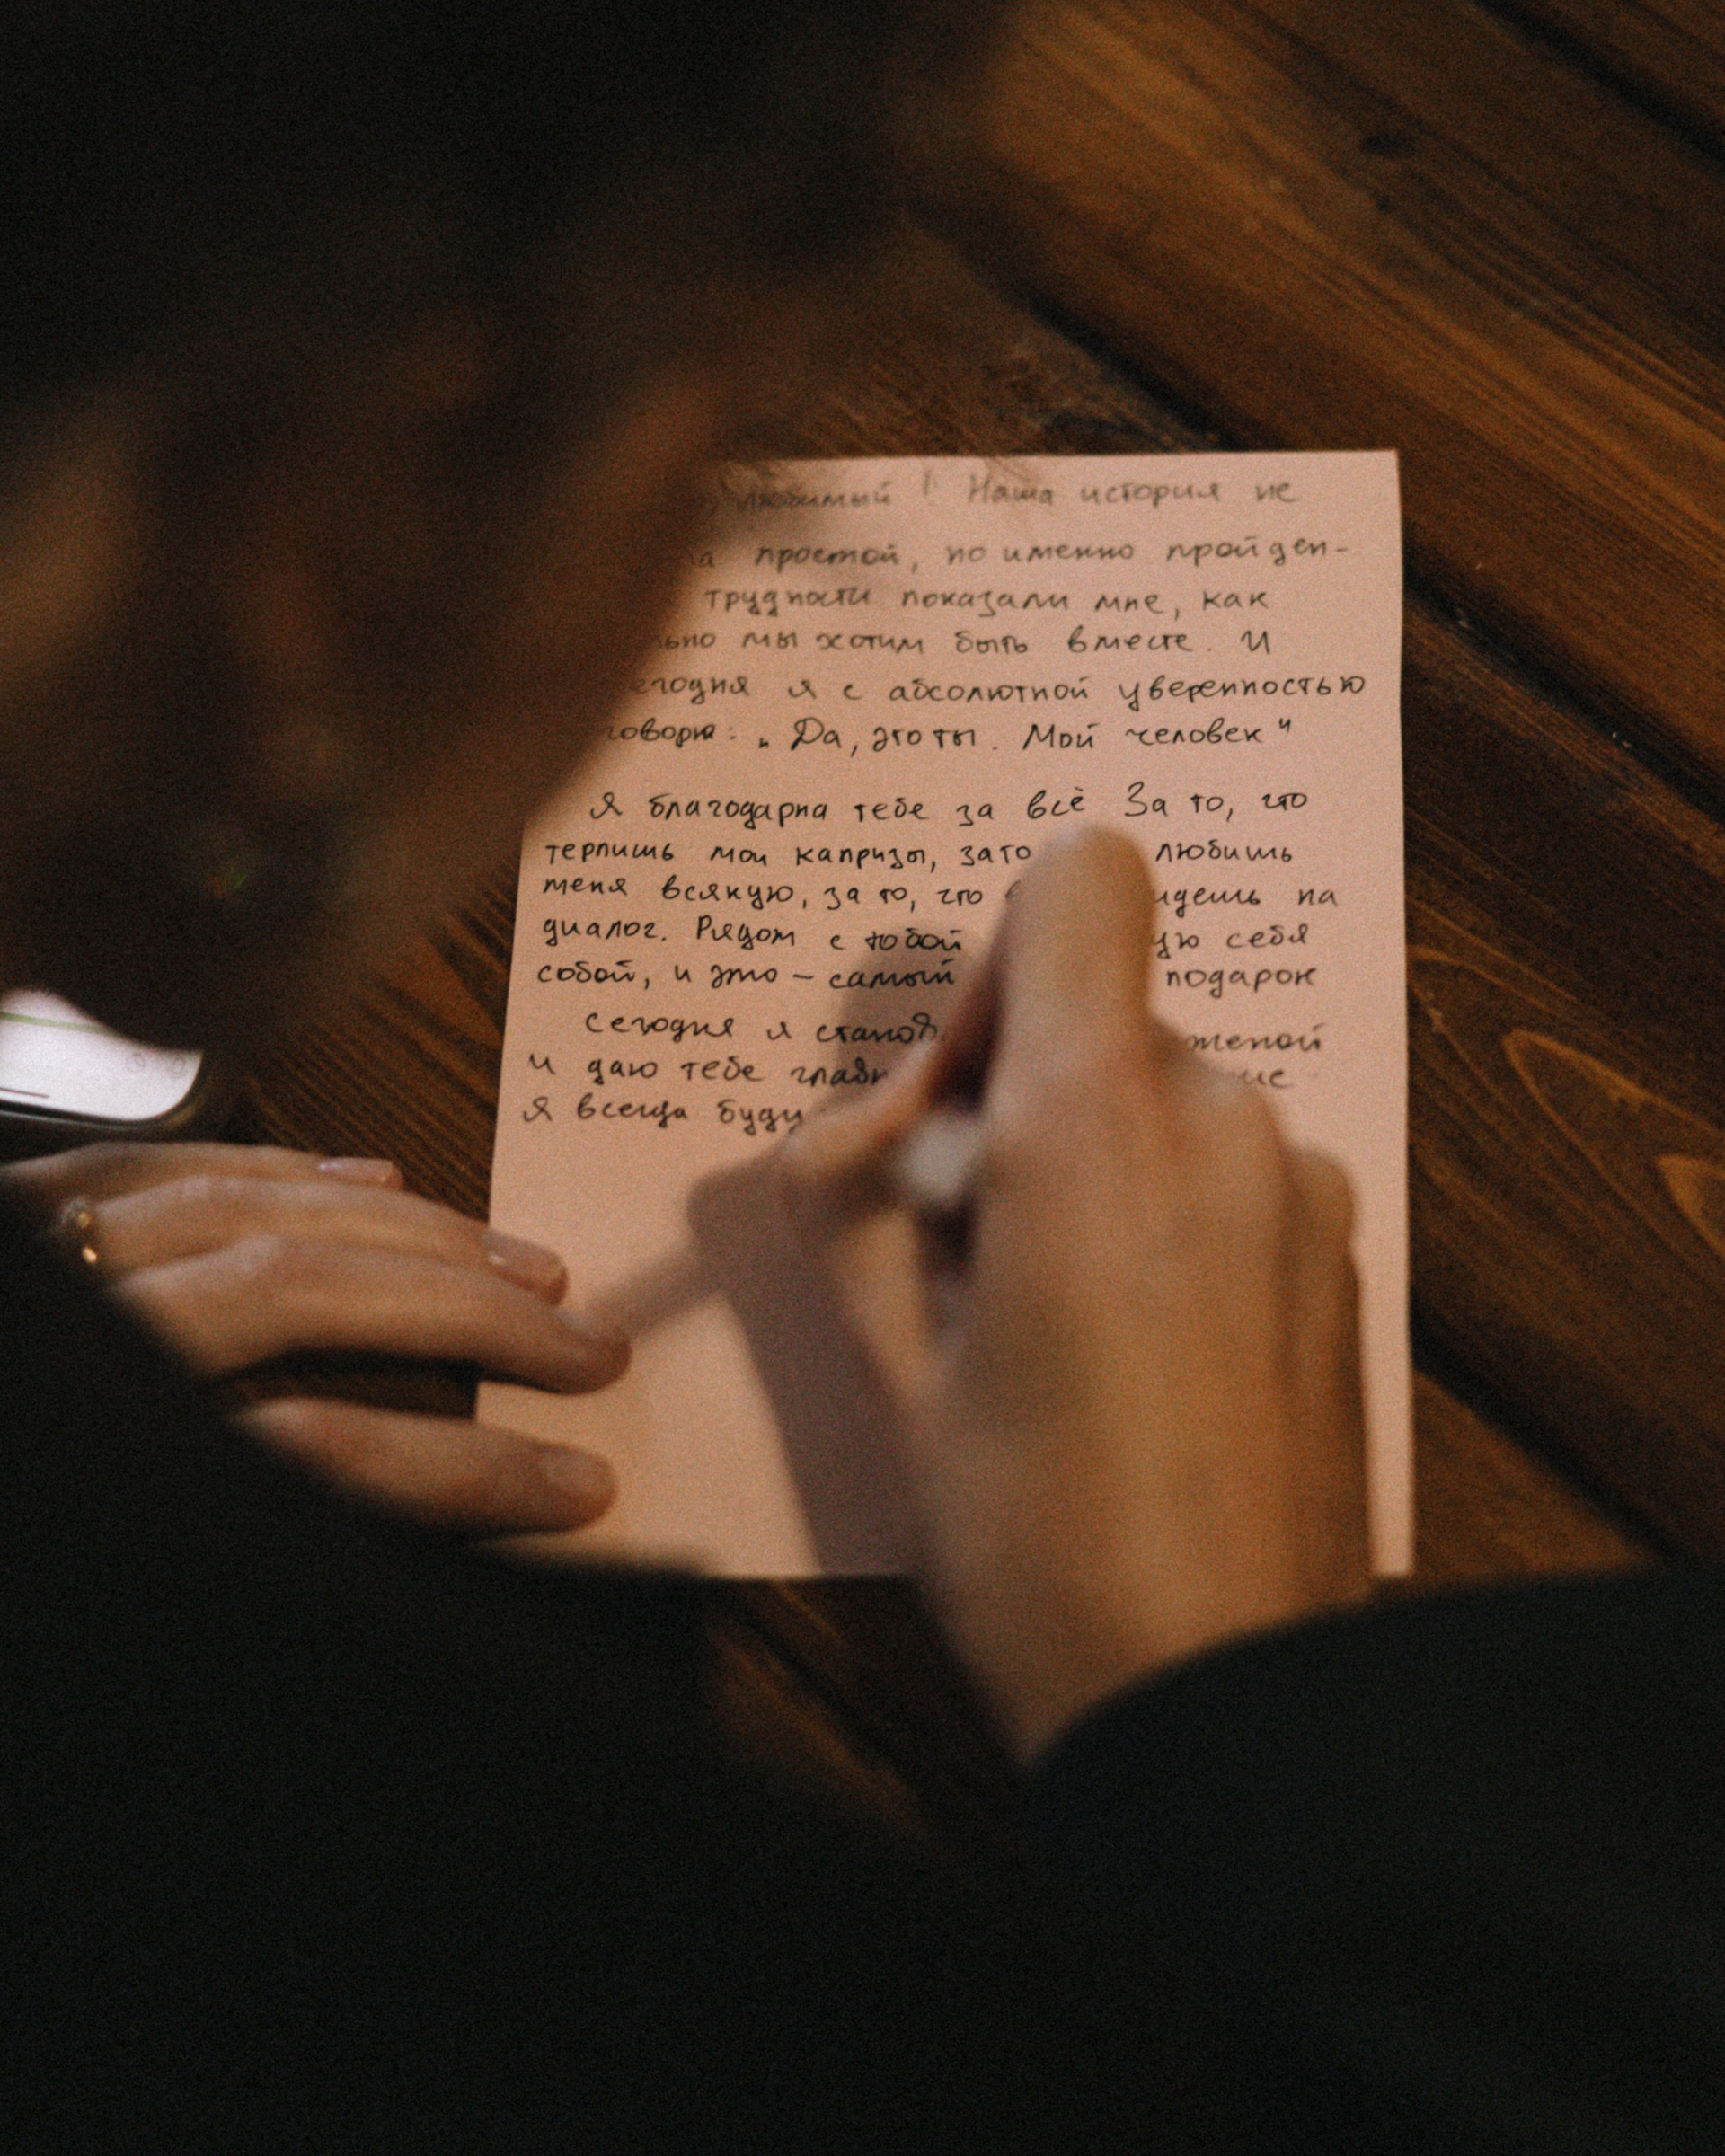 любимый! Наша история не
простой, но именно пройден-
трудности показали мне, как
мы хотим быть вместе. И
сегодня я с абсолютной уверенностью
говорю: „Да, это ты. Мой человек"
Я благодарна тебе за всё За то, что
терпишь мои капризы, за то любишь
меня всякую, за то, что идешь на
диалог. Рядом с тобой себя
собой, и это – самый подарок
Сегодня я женой
и даю тебе
Я всегда буду